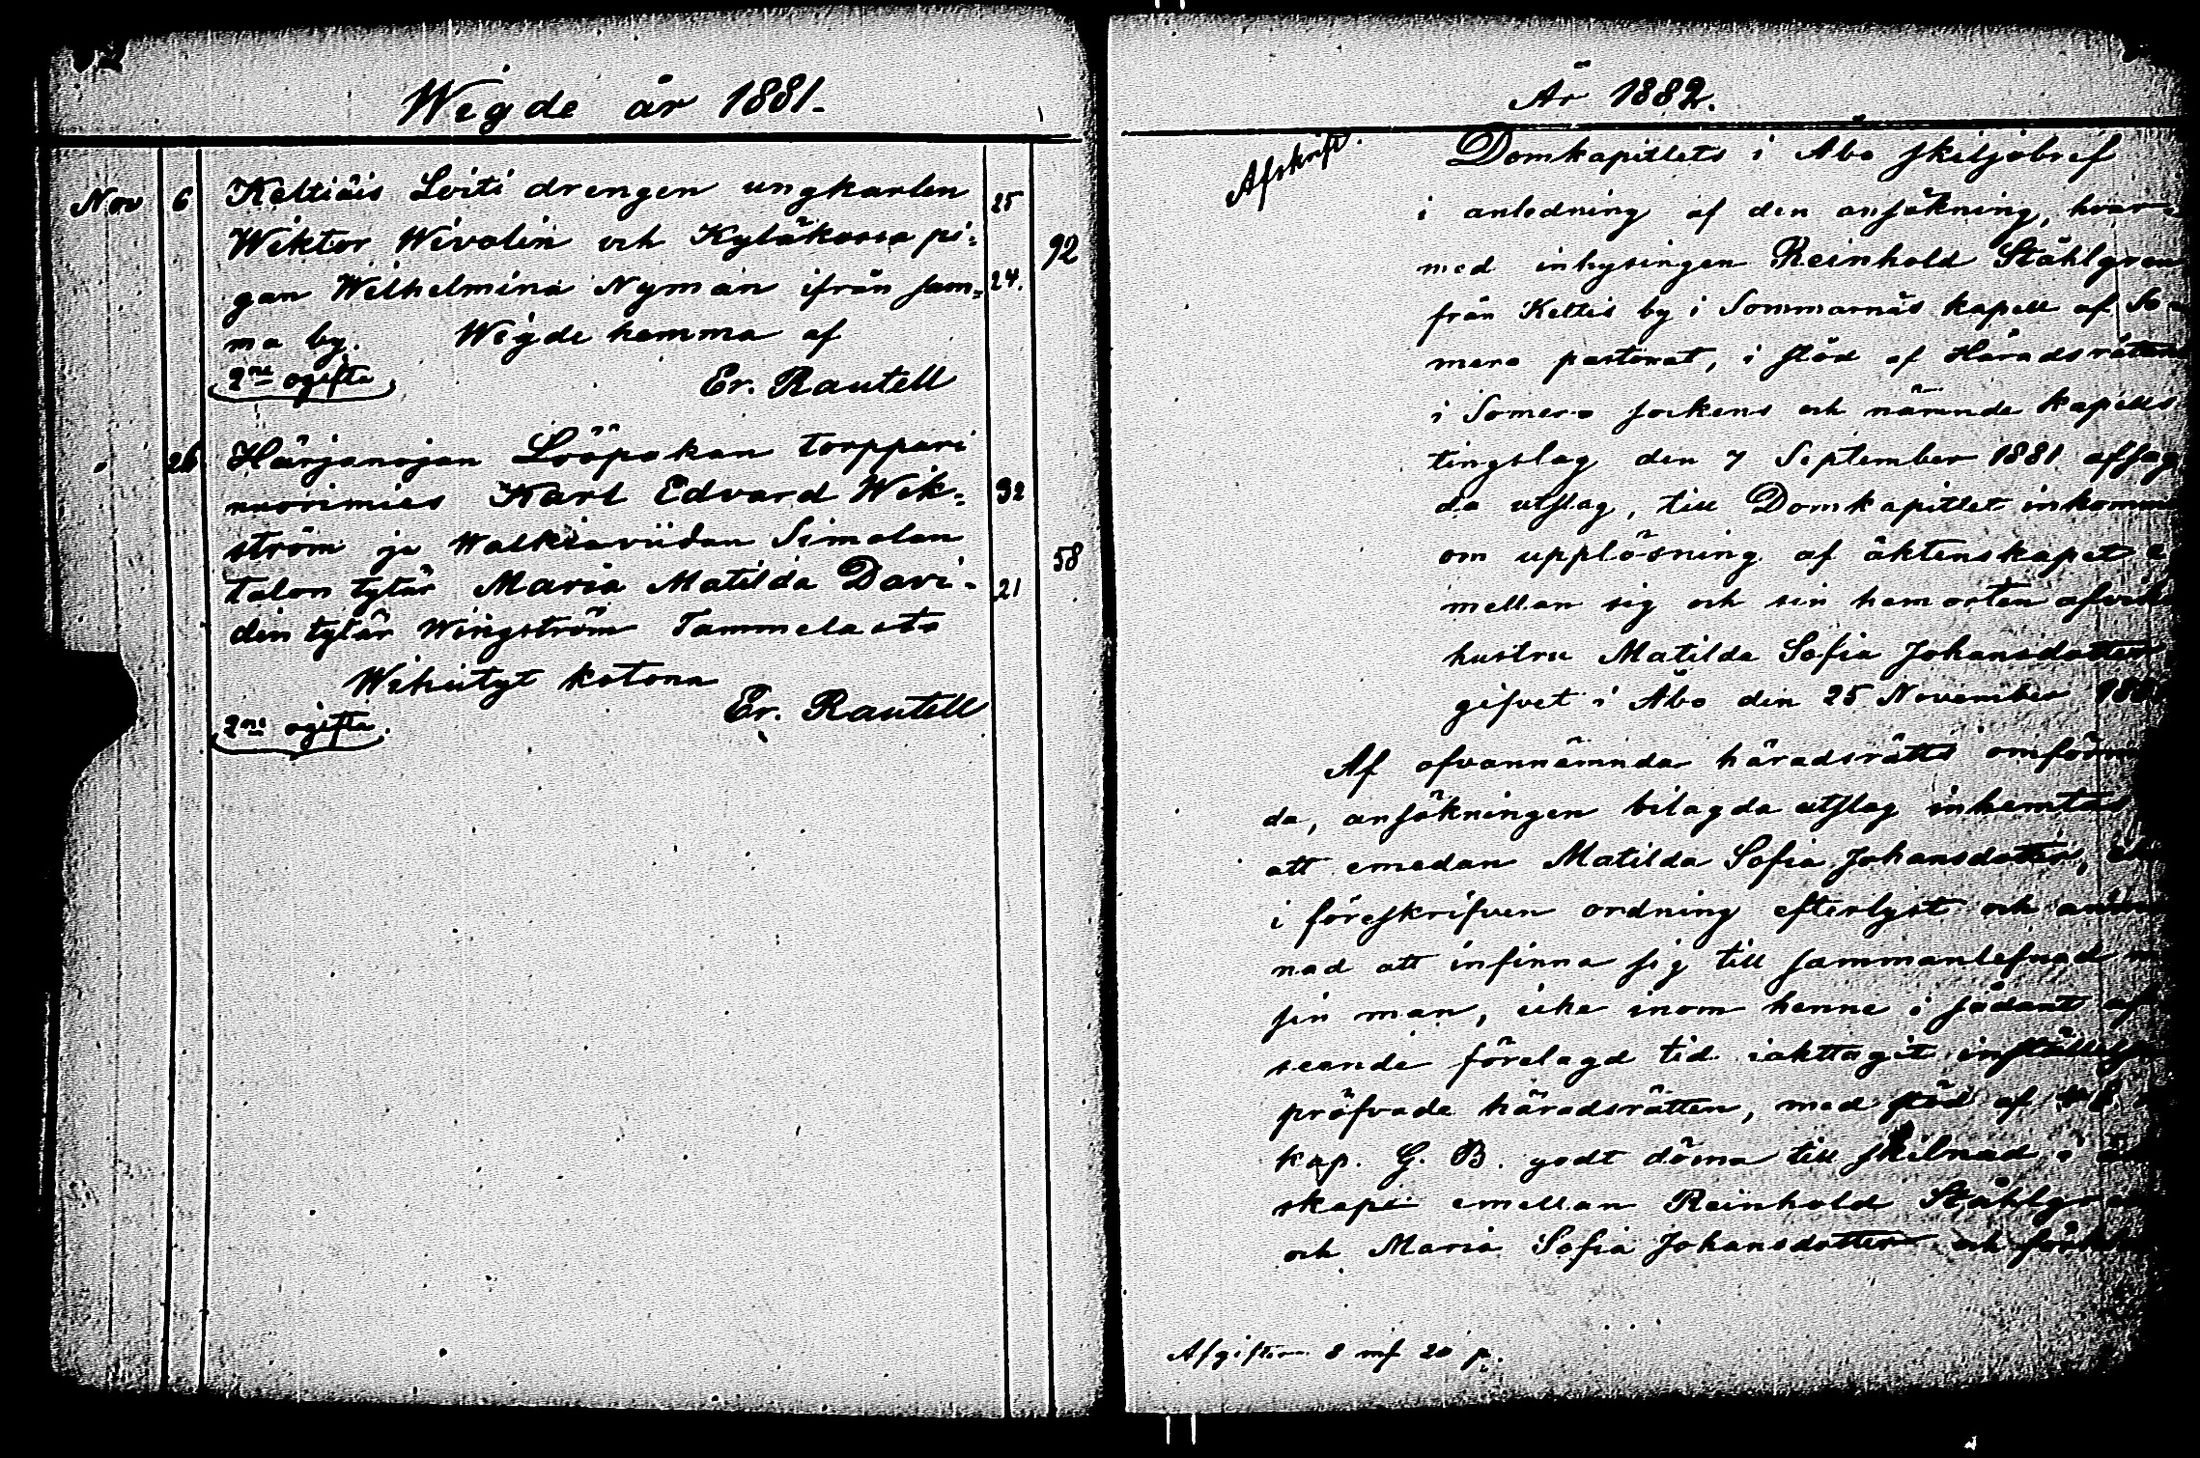 Wigde år 1881.
Nov 6 Keltiäis Loiti drengen ungkarlen 25
Wiktor Wivolin och Kyläkossa pi= 92
gan Wilhelmina Nyman ifrån sam= 24.
ma by. Wigde hemma af
2ne ogifta
Er. Rautell
" 26 Härjanojan Lööpakan torppari
nuorimies Karl Edvard Wik= 32
ström ja Walkiaviidan Simolan 58
talon tytär Maria Matilda Davi- 21
din tytär Wingström Tammelasta
Wihityt kotona
2ne ogifta.
Er. Rautell
År 1882.
Afskrift.
Domkapitlets i Åbo skiljobref
i anledning af den ansökning, hvar=
med inhysingen Reinhold Ståhlgren
från Keltis by i Sommarnäs kapell af So=
mero pastorat, i stöd af Häradsrättens
i Somero sockens och nämnde kapells
tingslag den 7 September 1881 afsag
da utslag, till Domkapitlet inkommit
om upplösning af äktenskapet e
mellan sig och sin hemorten afvik
hustru Matilda Sofia Johansdotter
gifvet i Åbo den 25 November 188
Af ofvannämnda häradsrätts omförm
da, ansökningen bilagda utslag inhemtas
att emedan Matilda Sofia Johansdotter,
i föreskrifven ordning efterlyst och anm
nad att infinna sig till sammanlefnad m
sin man, icke inom henne i sådant af
seende förelagd tid iakttagit inställelse
pröfvade häradsrätten, med stöd af
kap. G. B. godt döma till skilnad i äk
skapet emellan Reinhold Ståhlgren
och Maria Sofia Johansdotter och
Afgiften 8 mf 20 p.